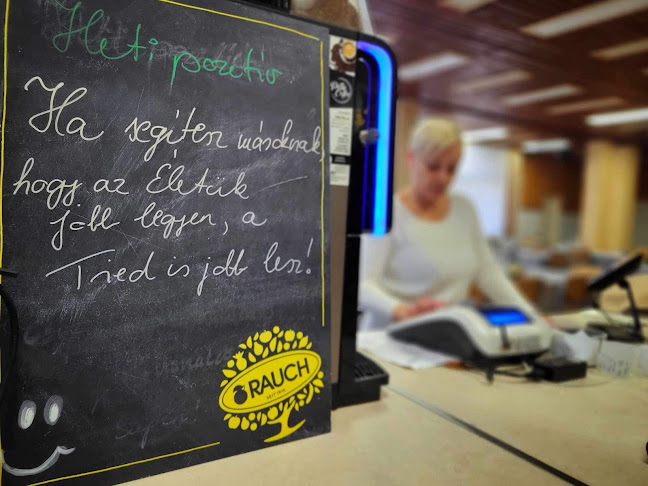 Heti pozitív
Ha segítesz másoknak,
hogy az Életük
jobb legyen, a
Tied is jobb lesz!
RAUCH
SEIT 1919